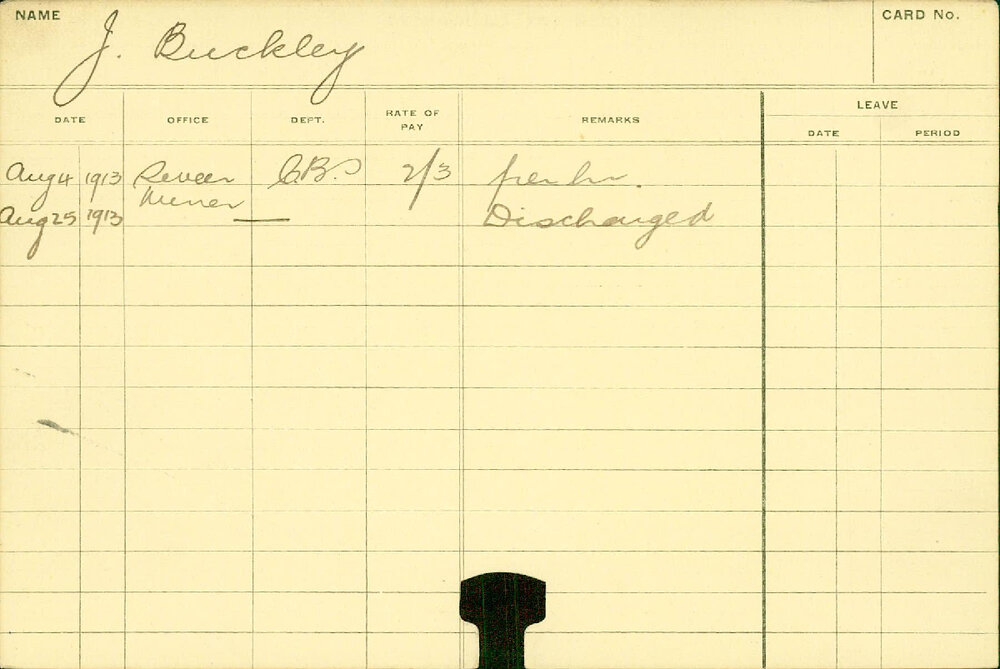 NAME J. Buckley CARD No.
DATE OFFICE DEPT. RATE OF PAY REMARKS LEAVE
DATE PERIOD
Aug 4 1913 Sewer 2/3 per hr.
Miner
Aug 25 1913 — Discharged